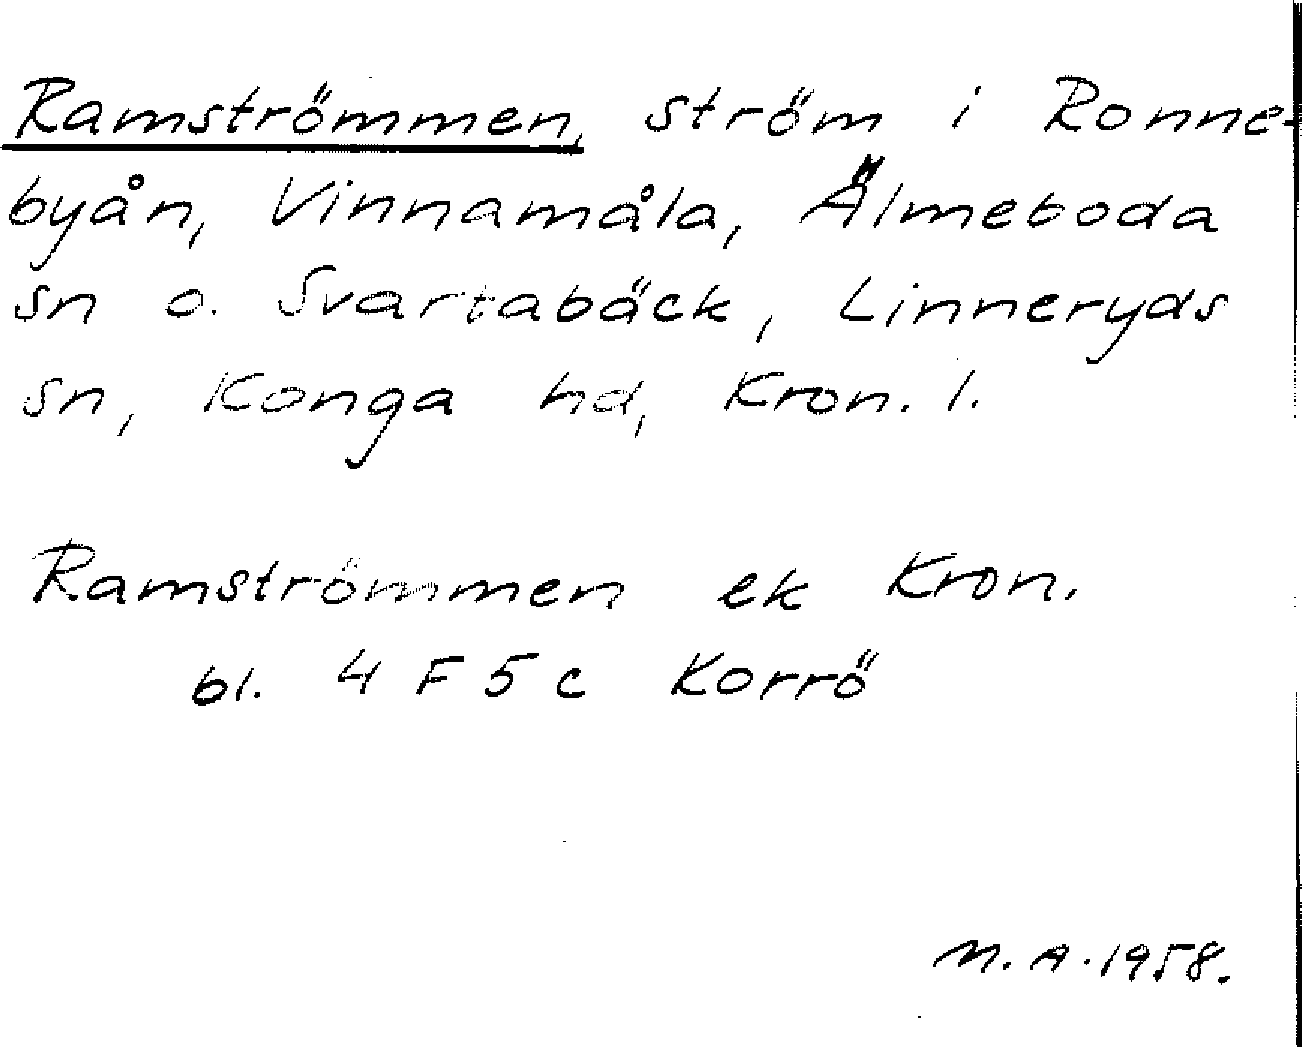 Ramströmmen, ström i Ronne-
byån, Vinnamåla, Älmeboda
sn o. Svartabäck, Linneryds
sn, Konga hd, Kron. l.
Ramströmmen ek Kron.
bl. 4 F 5 c Korrö
M. A. 1958.